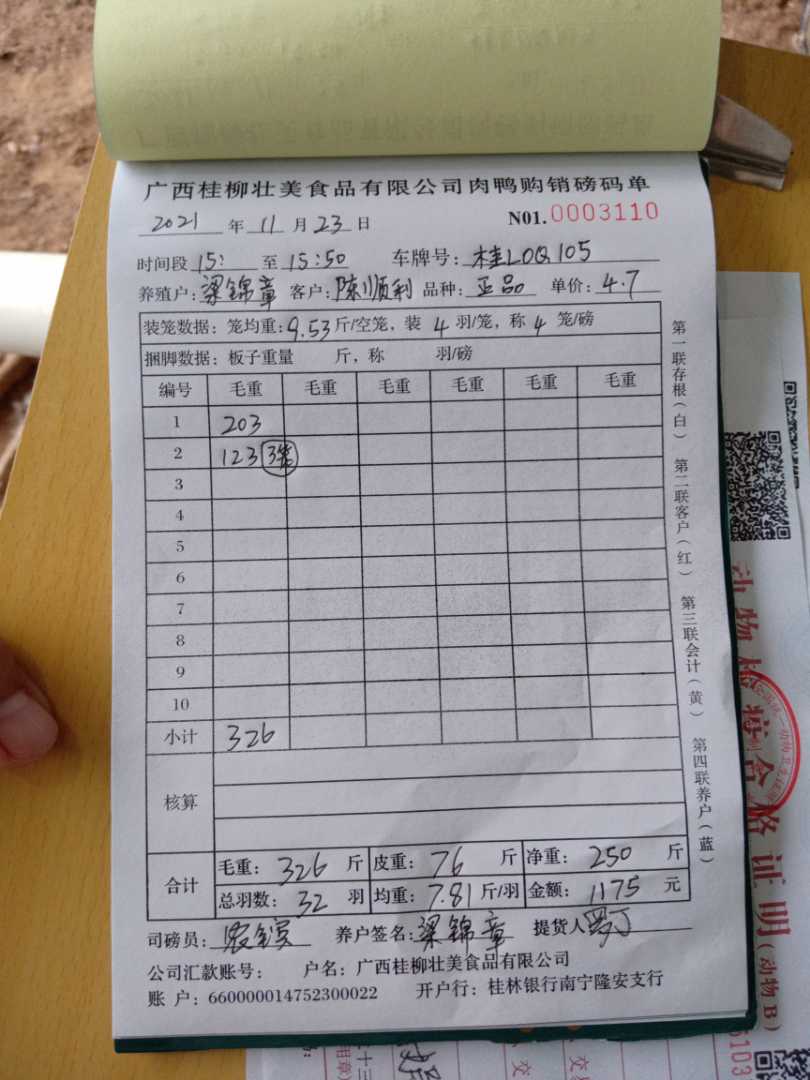 广西桂柳壮美食品有限公司肉鸭购销磅码单
2021 年 11 月 23 日 N01.0003110
时间段 15: 至 15:50 车牌号: 桂L0Q105
养殖户: 梁锦章 客户: 陈顺利 品种: 正品 单价: 4.7
装笼数据: 笼均重: 9.53 斤/空笼, 装 4 羽/笼, 称 4 笼/磅
捆脚数据: 板子重量 斤, 称 羽/磅
编号 毛重 毛重 毛重 毛重 毛重 毛重
1 203
2 123 3笼
3
4
5
6
7
8
9
10
小计 326
核算
合计 毛重: 326 斤 皮重: 76 斤 净重: 250 斤
总羽数: 32 羽 均重: 7.81 斤/羽 金额: 1175 元
司磅员: 养户签名: 梁锦章 提货人
公司汇款账号: 户名: 广西桂柳壮美食品有限公司
账户: 660000014752300022 开户行: 桂林银行南宁隆安支行
第一联存根(白) 第二联客户(红) 第三联会计(黄) 第四联养户(蓝)
动物检疫合格证明(动物B)